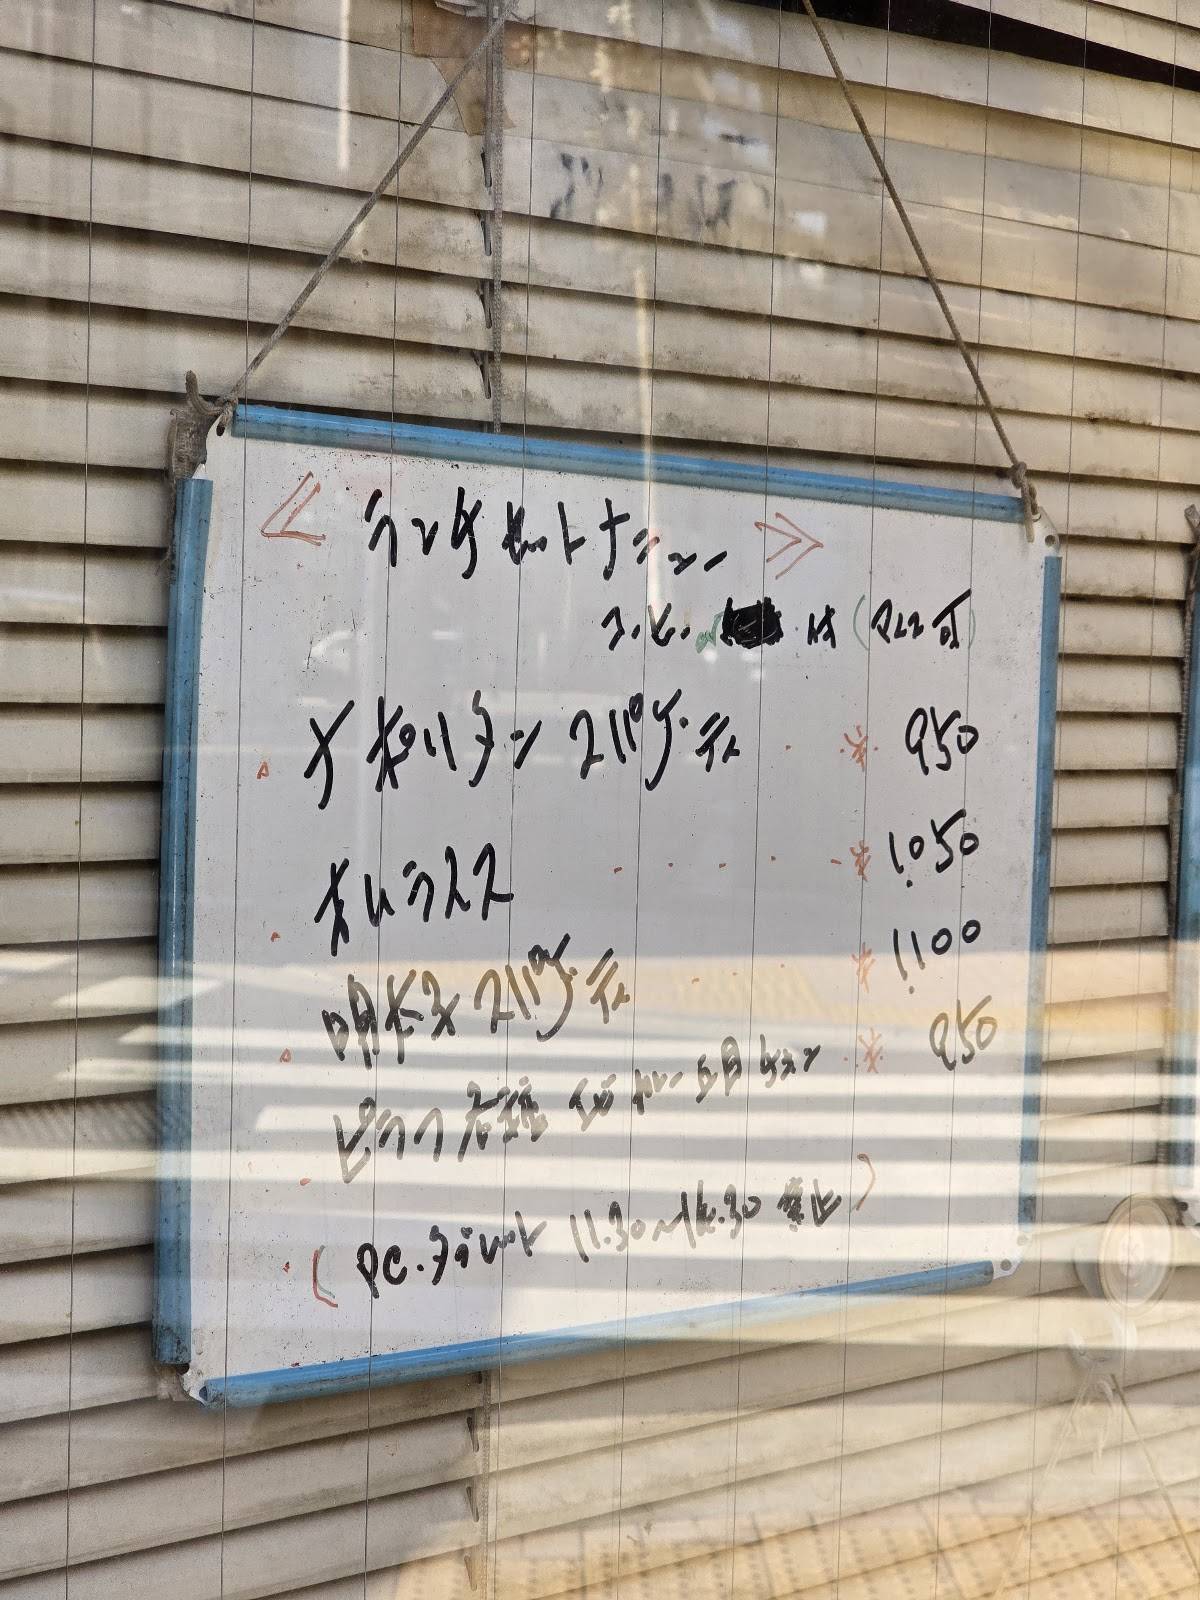 ≪ ランチセットメニュー ≫
コーヒー 付 (アイス可)
・ナポリタン スパゲティ ・ ※ 950
・オムライス ・・・・・ ※ 1.050
・明太子 スパゲティ ・・・ ※ 1.100
・ピラフ各種 エビ カレー 五目 チキン ※ 950
・(PC.タブレット 11.30〜14.30 禁止)